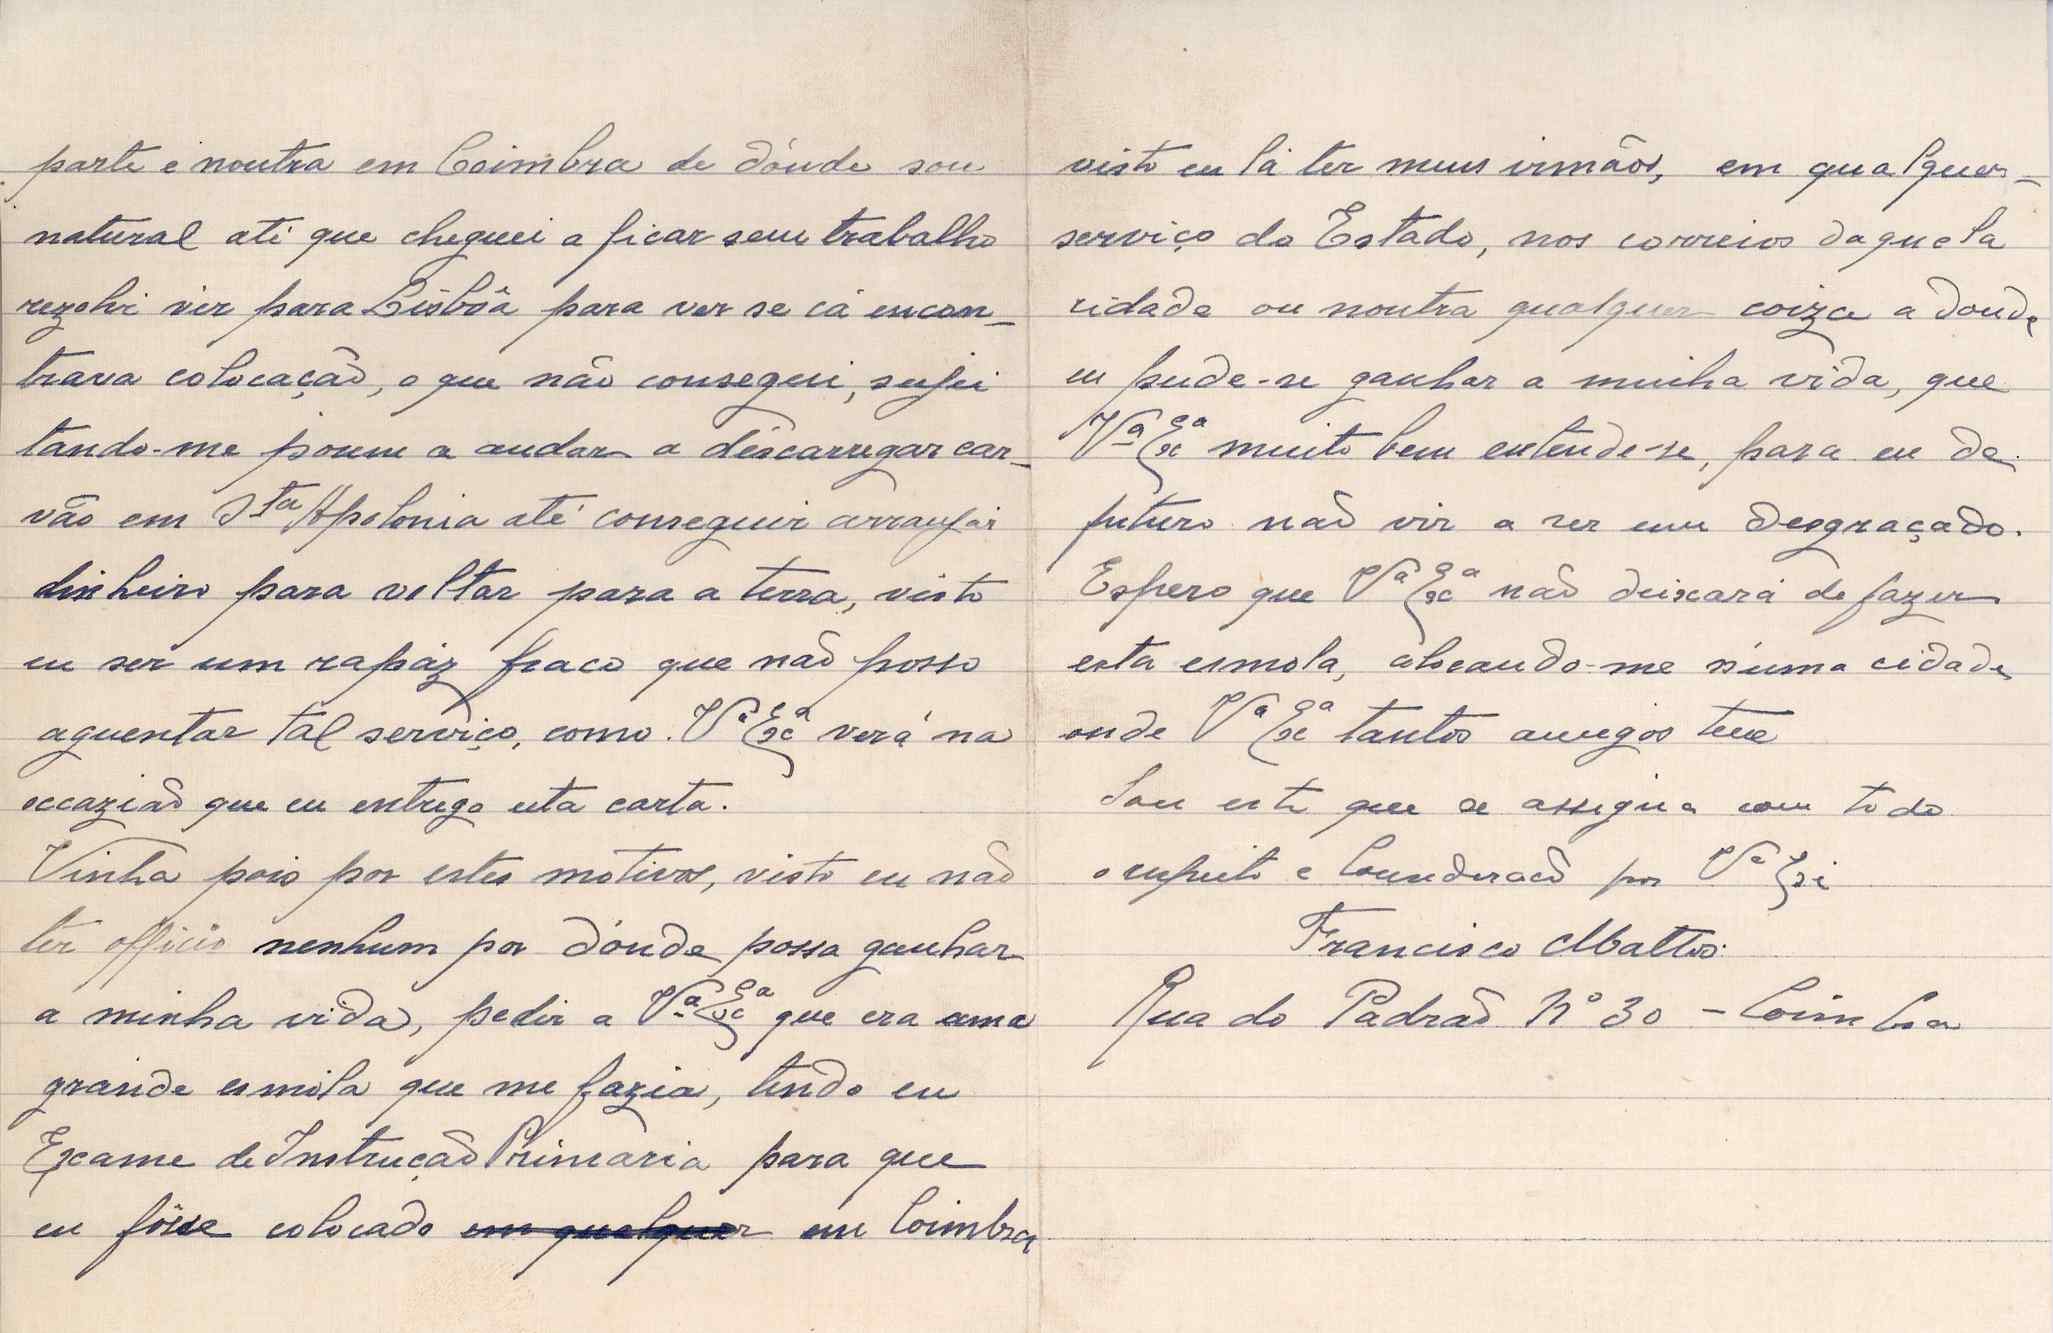 parte e noutra em Coimbra de dónde sou
natural até que cheguei a ficar sem trabalho
rezolvi vir para Lisbôa para ver se cá encon-
trava colocação, o que não consegui, sujei
tando-me porem a andar a descarregar car-
vão em Sta Apolonia até conseguir arranjar
dinheiro para voltar para a terra, visto
eu ser um rapáz fraco que não posso
aguentar tal serviço, como Vª Excª verá na
occazião que eu entrego esta carta.
Vinha pois por estes motivos, visto eu não
ter officio nenhum por dónde possa ganhar
a minha vida, pedir a Vª Excª que era uma
grande esmola que me fazia, tendo eu
Exame de Instrução Primária para que
eu fôsse colocado em qualquer em Coimbra
visto eu lá ter meus irmãos, em qualquer-
serviço do Estado, nos correios daquela
cidade ou noutra qualquer coiza a donde
eu pude-se ganhar a minha vida, que
Vª Excª muito bem entende-se, para eu de
futuro não vir a ser um desgraçado.
Espero que Vª Excª não deixará de fazer
esta esmola, alocando-me n'uma cidade
onde Vª Excª tantos amigos tem
Sou este que se assigna com todo
o respeito e Counderacão por Vª Exª
Francisco Mattos
Rua do Padrão Nº 30 - Coimbra